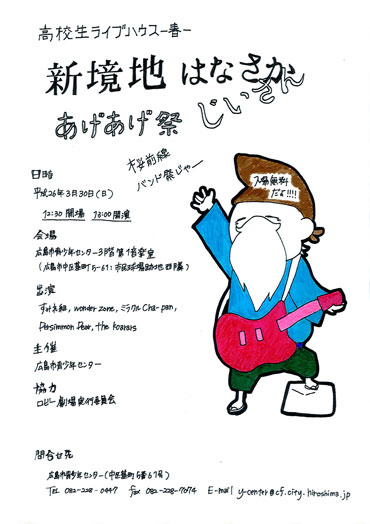 高校生ライブハウスー春ー
新境地 はなさかじいさん
あげあげ祭
桜前線
バンド祭じゃー
入場無料
だよ!!!!
日時
平成26年3月30日(日)
12:30 開場 13:00 開演
会場
広島市青少年センター3階 第1音楽室
(広島市中区基町5-61:市民球場跡地西隣)
出演
すみれ組, wonder zone, ミラクルCha-pan,
Persimmon Pear, the Koarars
主催
広島市青少年センター
協力
ロビー劇場実行委員会
問合せ先
広島市青少年センター(中区基町5番61号)
TEL 082-228-0447 fax 082-228-7074 E-mail y-center@cf.city.hiroshima.jp